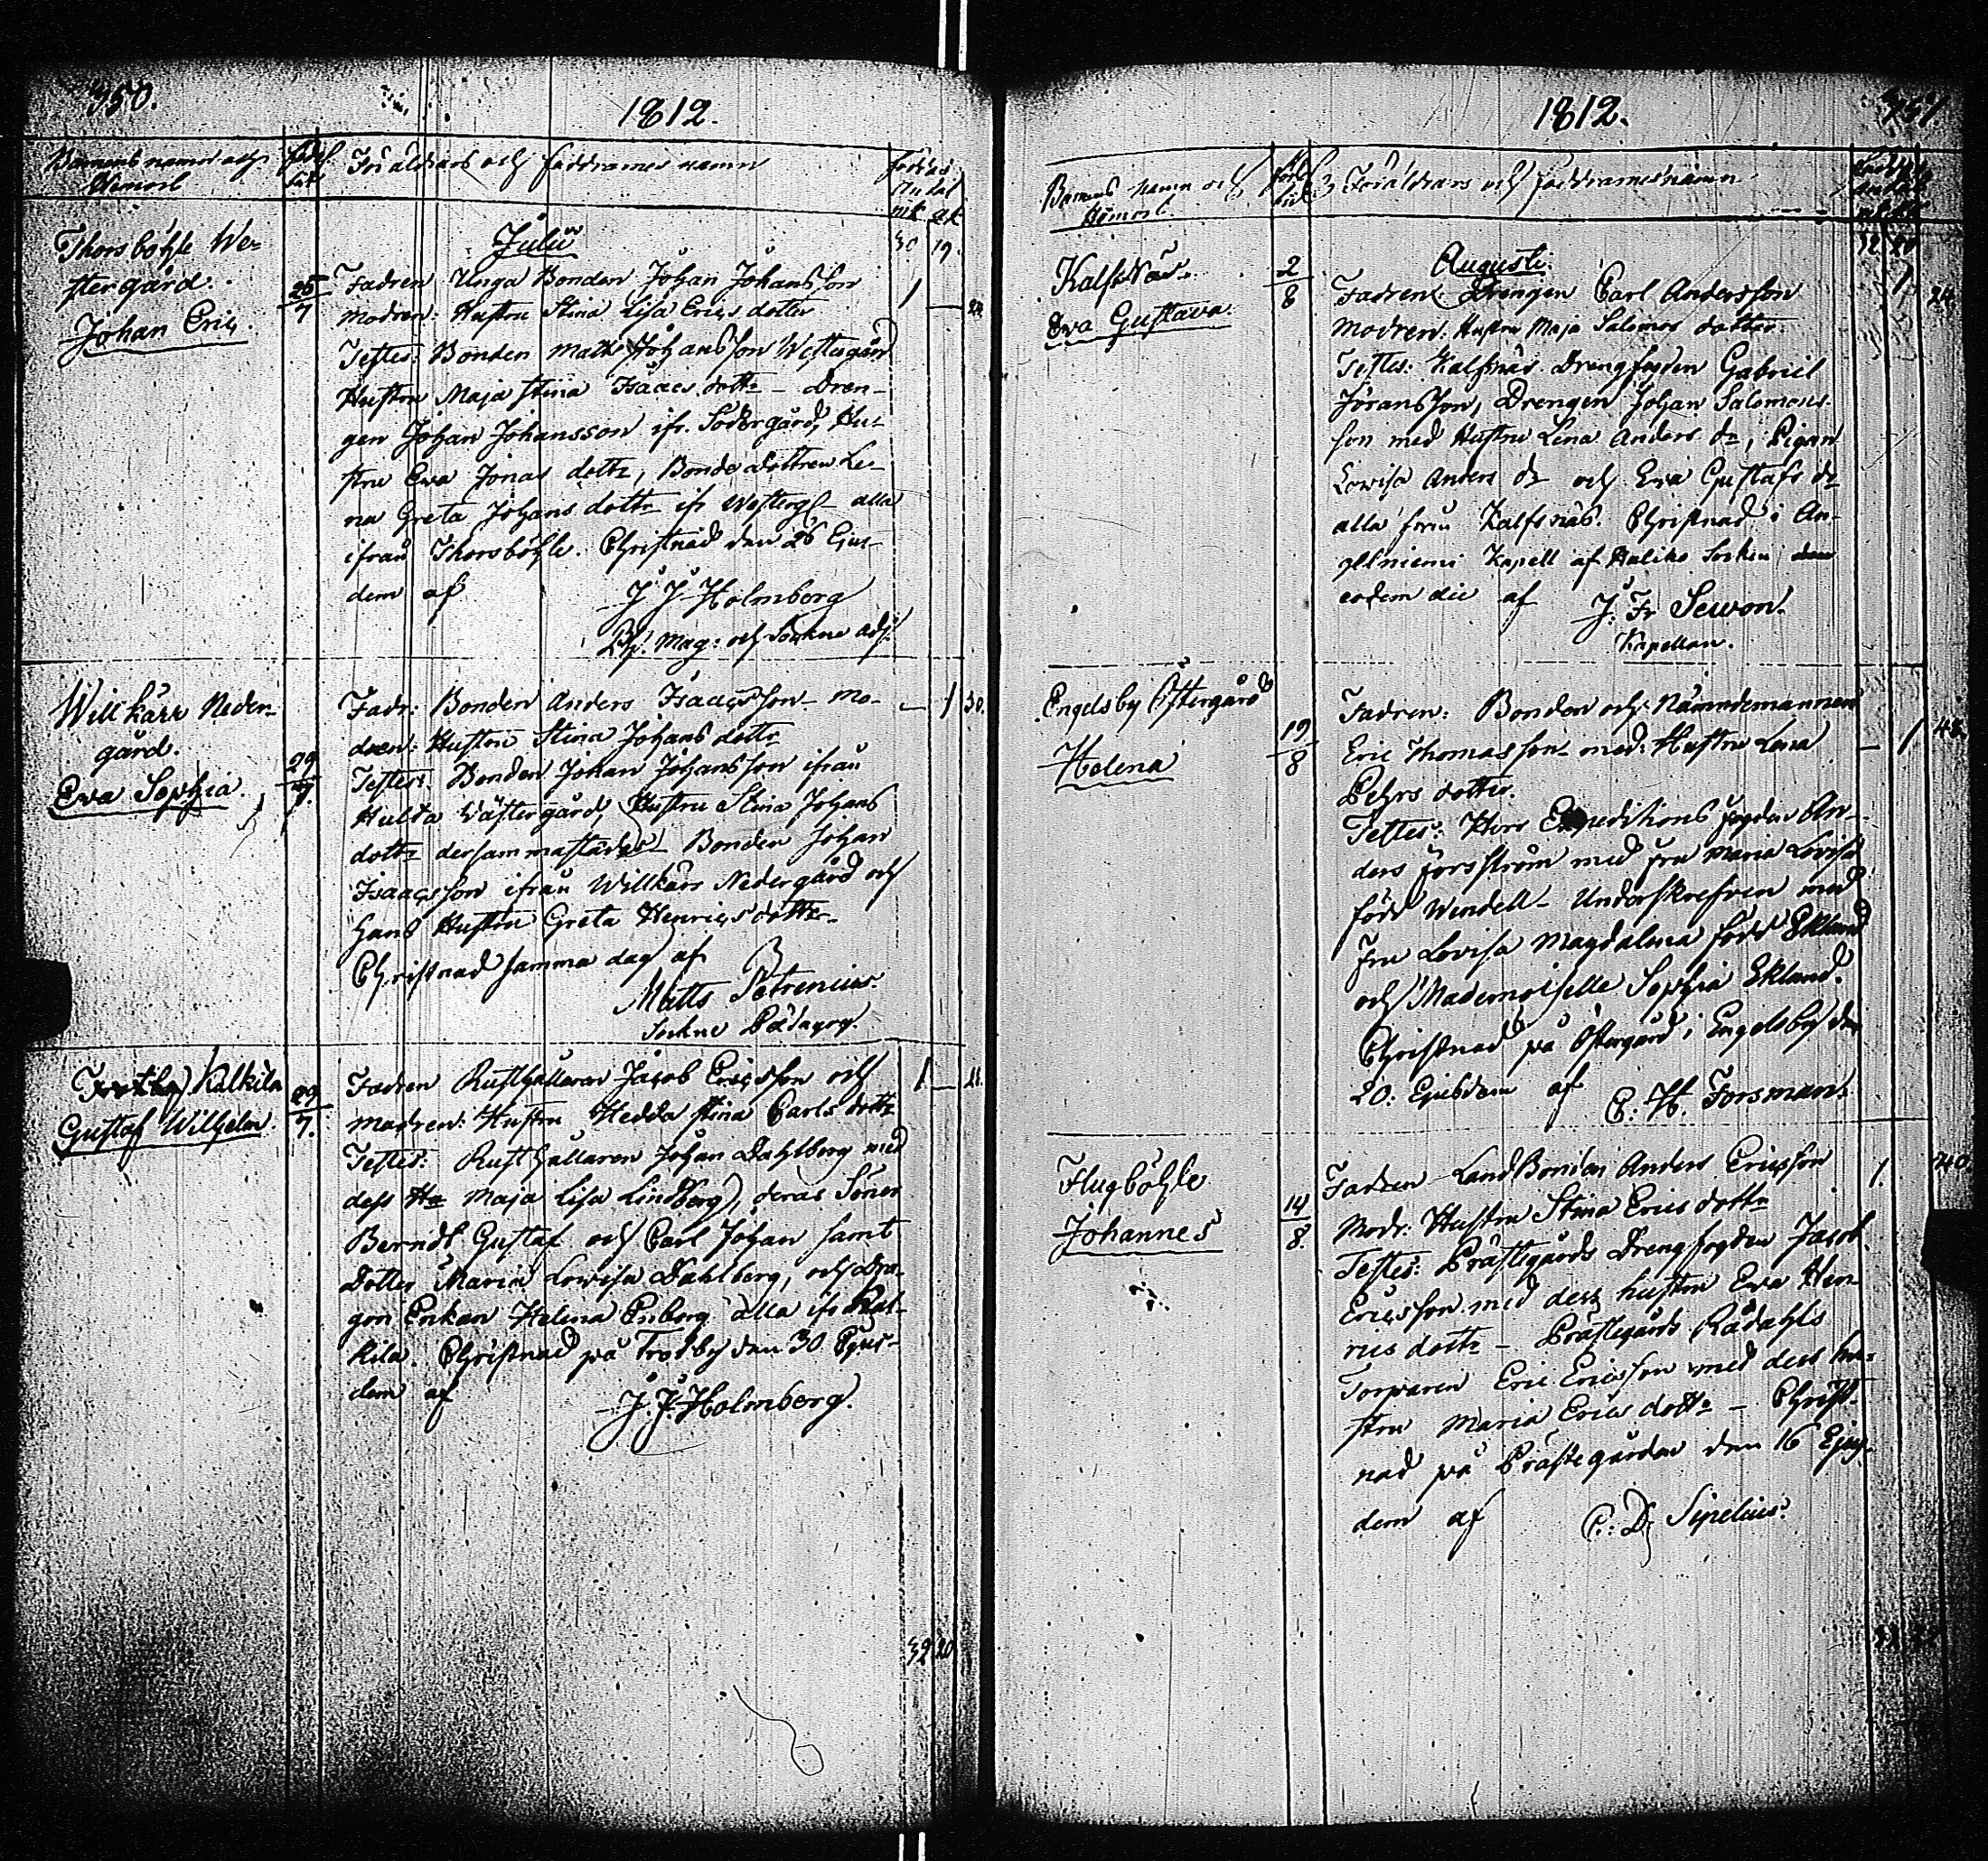 350.
1812.
Barnens namn och
Hemort
Föräldrars och faddrarnes namn
mk qk
30 19.
Julii
Thorsböhle We-
stergård.
Johan Eric.
25
7
Fadren Unga Bonden Johan Johansson
Modren: Hustru Stina Lisa Erics dotter
1 —
Testes: Bonden Matts Johansson Westergård
Hustru Maja Stina Isaacs dottr – Dren-
gen Johan Johansson ifr. Södergård, Hu-
stru Ewa Jonas dottr, Bonde dottren Le-
na Greta Johans dottr ifr Westergd – alla
ifrån Thorsböhle. Christnad den 26 Ejus-
dem af
J J Holmberg
Ph: Mag: och Sockne Adj:
Willkärr Neder-
gård.
Eva Sophia.
29
7.
Fadr: Bonden Anders Isaacsson – Mo-
— 1 30.
dren: Hustru Stina Johans dottr
Testes: Bonden Johan Johansson ifrån
Hulta Wästergård, Hustru Stina Johans
dottr dersammastädes – Bonden Johan
Isaacsson ifrån Willkärr Nedergård och
hans Hustru Greta Henrics dotter
Christnad samma dag af
Matts Petrenius.
Sockne Pædagog.
Trotby Kalkila
Gustaf Wilhelm.
29
7.
Fadren Rusthållaren Jacob Ericsson och
1 —
Modren: Hustru Hedda Stina Carls dottr
Testes: Rusthållaren Johan Dahlberg med
dess Hu Maja Lisa Lindberg, deras Söner
Berndt Gustaf och Carl Johan samt
Dotter Maria Lowisa Dahlberg, och Dra-
gon Enkan Helena Enberg alla ifr Kal-
kila. Christnad på Trotby den 30 Ejus-
dem af
J. J. Holmberg.
32 20.
1812.
351
Barnens namn och
Hemort
Föräldrars och faddrarnes namn
32 20
Augusti
Kalfsnäs.
Eva Gustava.
2
8
Fadren: Drengen Carl Andersson
1 24.
Modren: Hustru Maja Salomos dotter
Testes: Kalfsnäs Drengfogden Gabriel
Jöransson, Drengen Johan Salomons-
son med Hustru Lena Anders dr, Pigan
Lowisa Anders dr och Eva Gustafs dr
alla från Kalfsnäs. Christnad i An-
gelniemi Kapell af Haliko Socken
eodem die af
J: Fr Sewon.
Kapellan.
Engelsby Östergård
Helena
19
8
Fadren: Bonden och Nämndemannen
Eric Thomasson – med: Hustru Lena
— 1 48.
Pehrs dotter.
Testes: Herr Expeditions fogden An-
ders Forsström med fru Maria Lovisa
född Wendell – Underskrefven med
Fru Lovisa Magdalena född Eklund
och Mademoiselle Sophia Eklund.
Christnad på Östergård i Engelsby den
20: Ejusdem af
E: H. Forsman.
Flugböhle
Johannes
14
8.
Fadren Land Bonden Anders Ericsson
1. 40.
Modr: Hustru Stina Erics dottr
Testes: Prästegårds Drengfogden Jacob
Ericsson med dess hustru Eva Hen-
rics dottr – Prästegårds Rådahls
Torparen Eric Ericsson med dess hu-
stru Maria Erics dottr – Christ-
nad på Prästegården den 16 Ejus-
dem af
C: D: Sipelius.